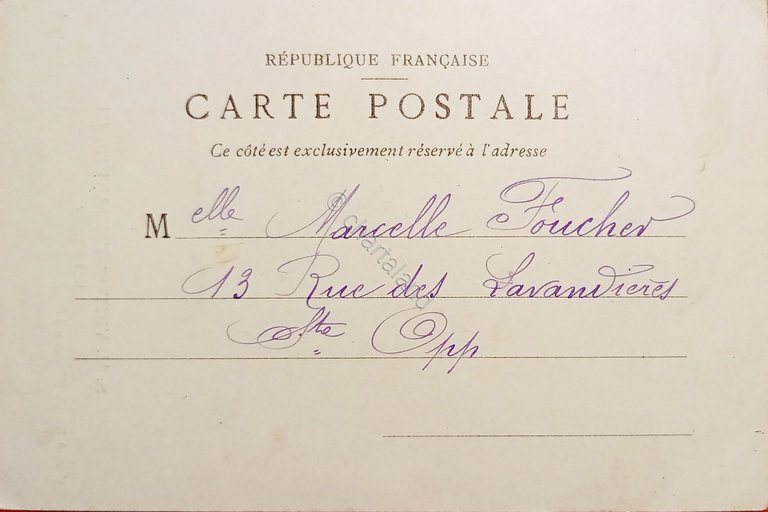 RÉPUBLIQUE FRANÇAISE
CARTE POSTALE
Ce côté est exclusivement réservé à l'adresse
Melle Marcelle Foucher
13 Rue des Lavandières
Ste Opp
© cartaland